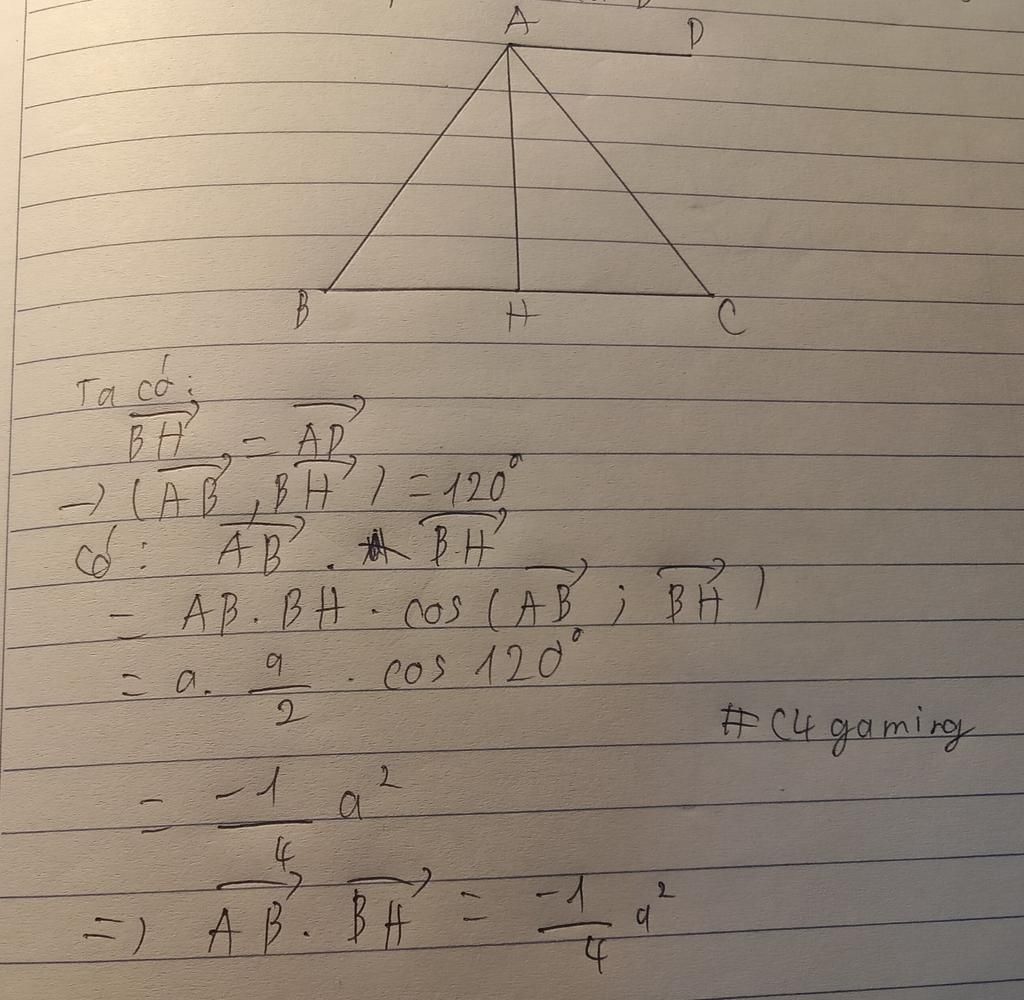 A D
B H C
Ta có:
$\overrightarrow{BH} = \overrightarrow{AD}$
→ ($\overrightarrow{AB}$, $\overrightarrow{BH}$) = 120°
Có: $\overrightarrow{AB}$ . $\overrightarrow{BH}$
= AB. BH . cos($\overrightarrow{AB}$ ; $\overrightarrow{BH}$)
= a. $\frac{a}{2}$ . cos 120°
# C4 gaming
= $\frac{-1}{4}$ a²
=> $\overrightarrow{AB}$. $\overrightarrow{BH}$ = $\frac{-1}{4}$ a²